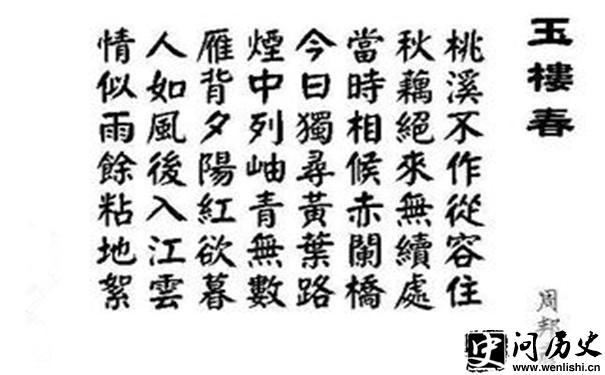 玉樓春
桃溪不作從容住
秋藕絕來無續處
當時相候赤闌橋
今日獨尋黃葉路
煙中列岫青無數
雁背夕陽紅欲暮
人如風後入江雲
情似雨餘粘地絮
周邦
史 问历史
www.wenlishi.cn